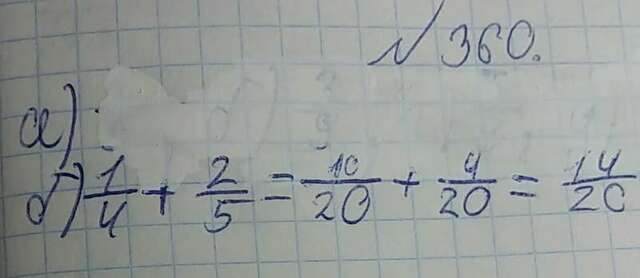 № 360.
а)
б) 1/4 + 2/5 = 10/20 + 4/20 = 14/20